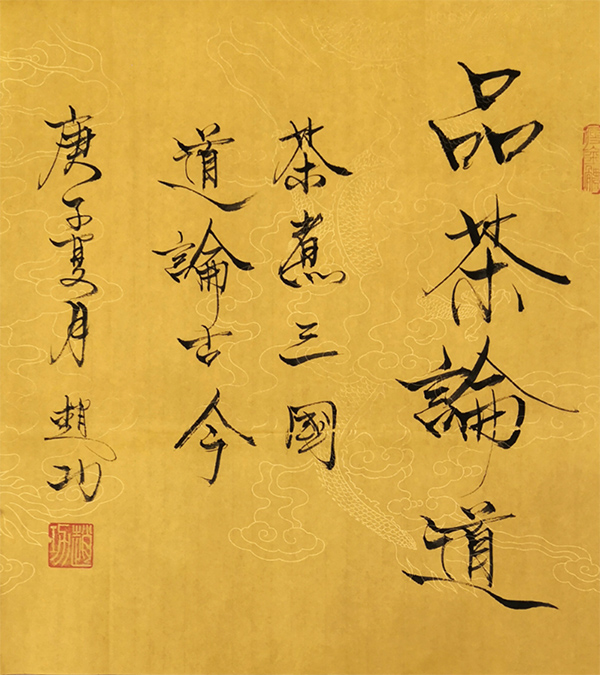 品茶論道
茶煮三國
道論古今
庚子夏月 趙功
趙功